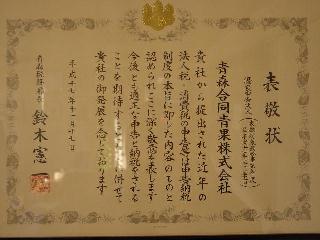 表敬状
青森合同青果株式会社
貴社から提出された近年の
法人税、消費税の申告等は申告納税
制度の本旨に即した内容のものと
認められここに深く敬意を表します
今後とも適正な申告と納税をされる
ことを期待するとともに併せて
貴社の御発展を念じております
平成十七年十一月十七日
青森税務署長
鈴木憲